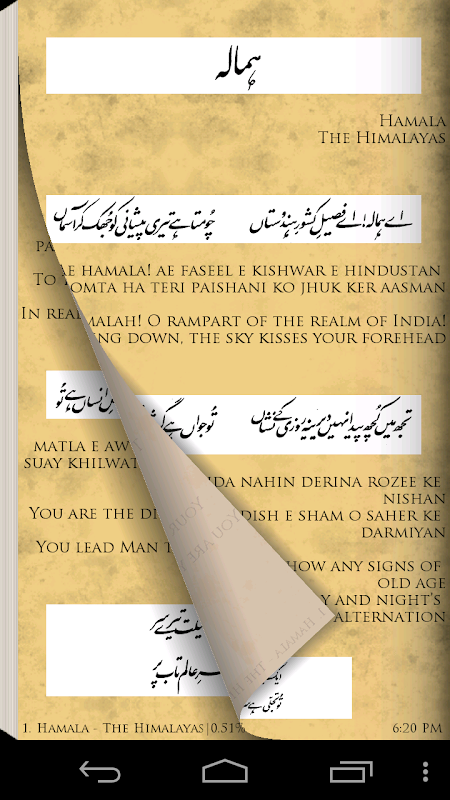 ہمالہ
Hamala
The Himalayas
اے ہمالہ! اے فصیلِ کشورِ ہندوستاں چُومتا ہے تیری پیشانی کو جھک کر آسماں
AE HAMALA! AE FASEEL E KISHWAR E HINDUSTAN
OMTA HA TERI PAISHANI KO JHUK KER AASMAN
To
In
MALAH! O RAMPART OF THE REALM OF INDIA!
NG DOWN, THE SKY KISSES YOUR FOREHEAD
تجھ میں کُچھ پیدا نہیں دیرینہ روزی کے نشاں تُو جواں ہے
انساں ہے تُو
MATLA E AW
SUAY KHILWAT
DA NAHIN DERINA ROZEE KE
NISHAN
You are the
DISH E SHAM O SAHER KE
DARMIYAN
You lead Man
HOW ANY SIGNS OF
OLD AGE
Y AND NIGHT'S
ALTERNATION
تیرے سر
عالم تاب پر
1. Hamala - The Himalayas|0.51%
6:20 PM